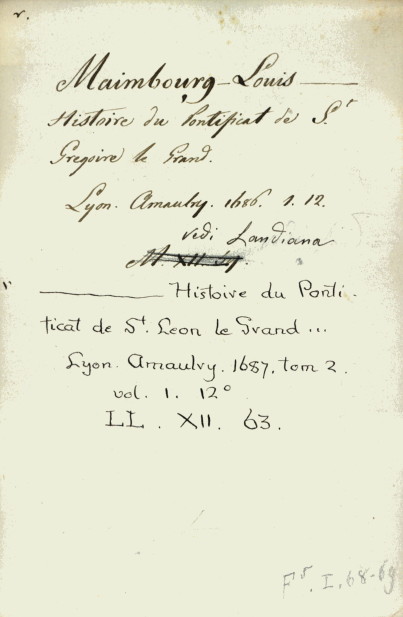 Maimbourg - Louis
Histoire du Pontificat de S.t
Gregoire le Grand.
Lyon. Amaulry. 1686. 1. 12.
vedi Landiana
M. XII. 59.
Histoire du Ponti-
ficat de St. Leon le Grand ...
Lyon. Amaulry. 1687. tom 2.
vol. 1. 12°
LL. XII. 63.
I. 68-69